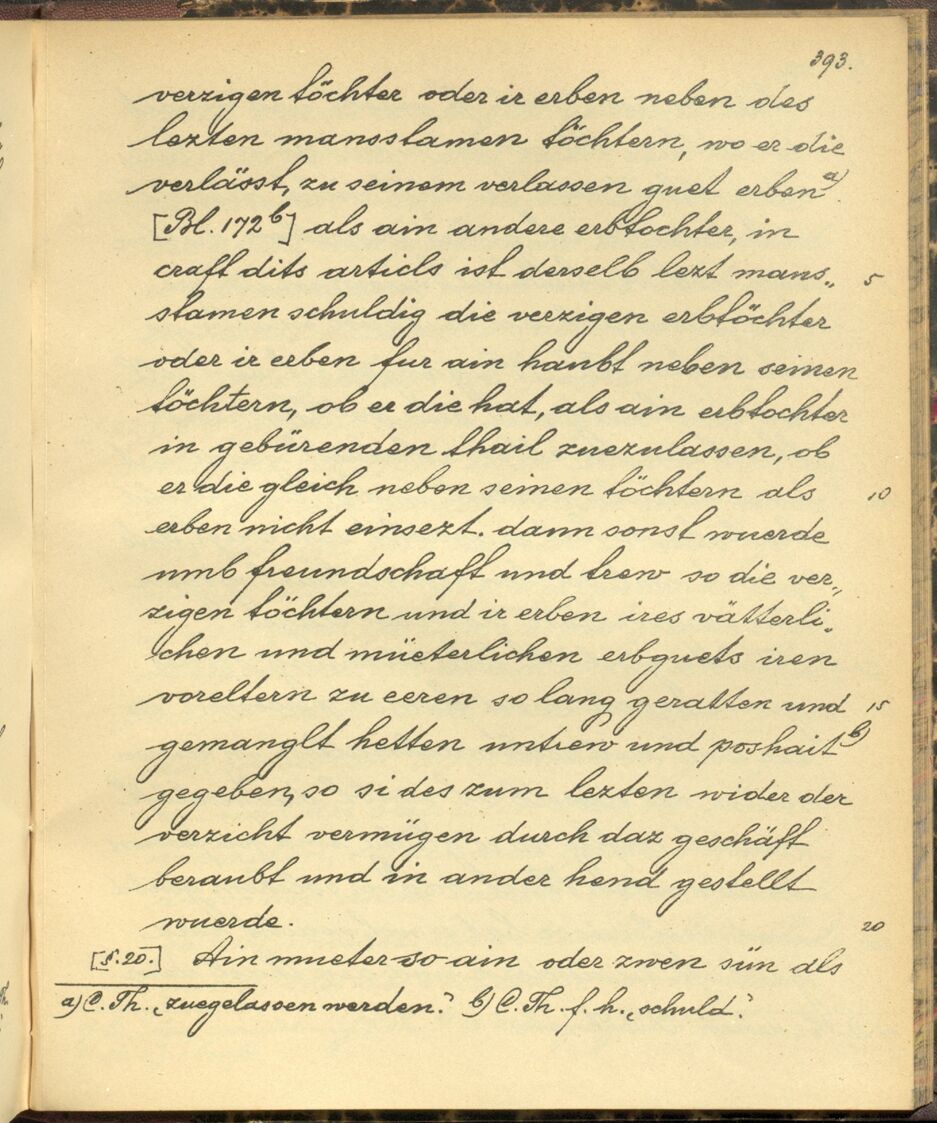 393.
verzigen töchter oder ir erben neben des
lezten mansstamen töchtern, wo er die
verlässt, zu seinem verlassen guet erben a)
[Bl. 172b] als ain andere erbtochter, in
craft dits articls ist derselb lezt mans„ 5
stamen schuldig die verzigen erbtöchter
oder ir erben fur ain haubt neben seinen
töchtern, ob er die hat, als ain erbtochter
in gebürenden thail zuezulassen, ob
er die gleich neben seinen töchtern als 10
erben nicht einsezt. dann sonst wuerde
umb freundschaft und trew so die ver„
zigen töchtern und ir erben ires vätterli„
chen und müeterlichen erbguets iren
voreltern zu eeren so lang geratten und 15
gemanglt hetten untrew und poshait b)
gegeben, so si des zum lezten wider der
verzicht vermügen durch daz geschäft
beraubt und in ander hend gestellt
wuerde. 20
[§. 20.] Ain mueter so ain oder zwen sün als
a) C. Th. „zuegelassen werden.“ b) C. Th. f. h. „schuld.“